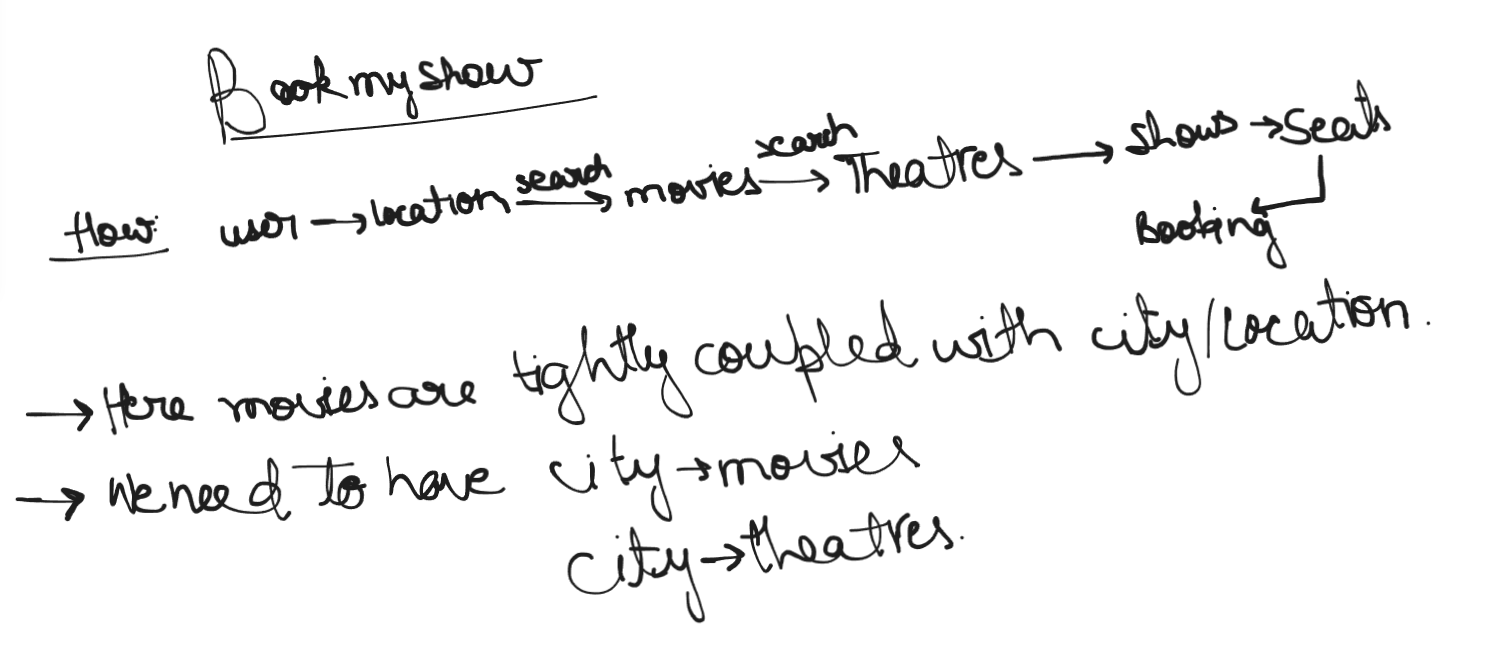 Bookmyshow
How: user → location search → movies search → Theatres → shows → Seats
Booking
→ Here movies are tightly coupled with city/location.
→ We need to have city → movies
city → theatres.